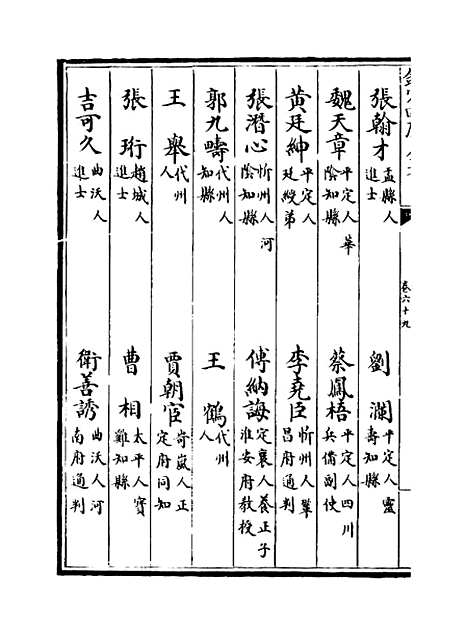 張翰才 盂縣人進士
劉瀾 平定人靈壽知縣
魏天章 平定人華陰知縣
蔡鳳梧 平定人四川兵備副使
黄廷紳 平定人廷綬弟
李堯臣 忻州人鞏昌府通判
張潛心 忻州人河陰知縣
傅納誨 定襄人養正子淮安府教授
郭九疇 代州人知縣
王鶴 代州人
王舉 代州人
賈朝宦 岢嵐人正定府同知
張珩 趙城人進士
曹相 太平人寶雞知縣
吉可久 曲沃人進士
衛善誘 曲沃人河南府通判
卷六十九